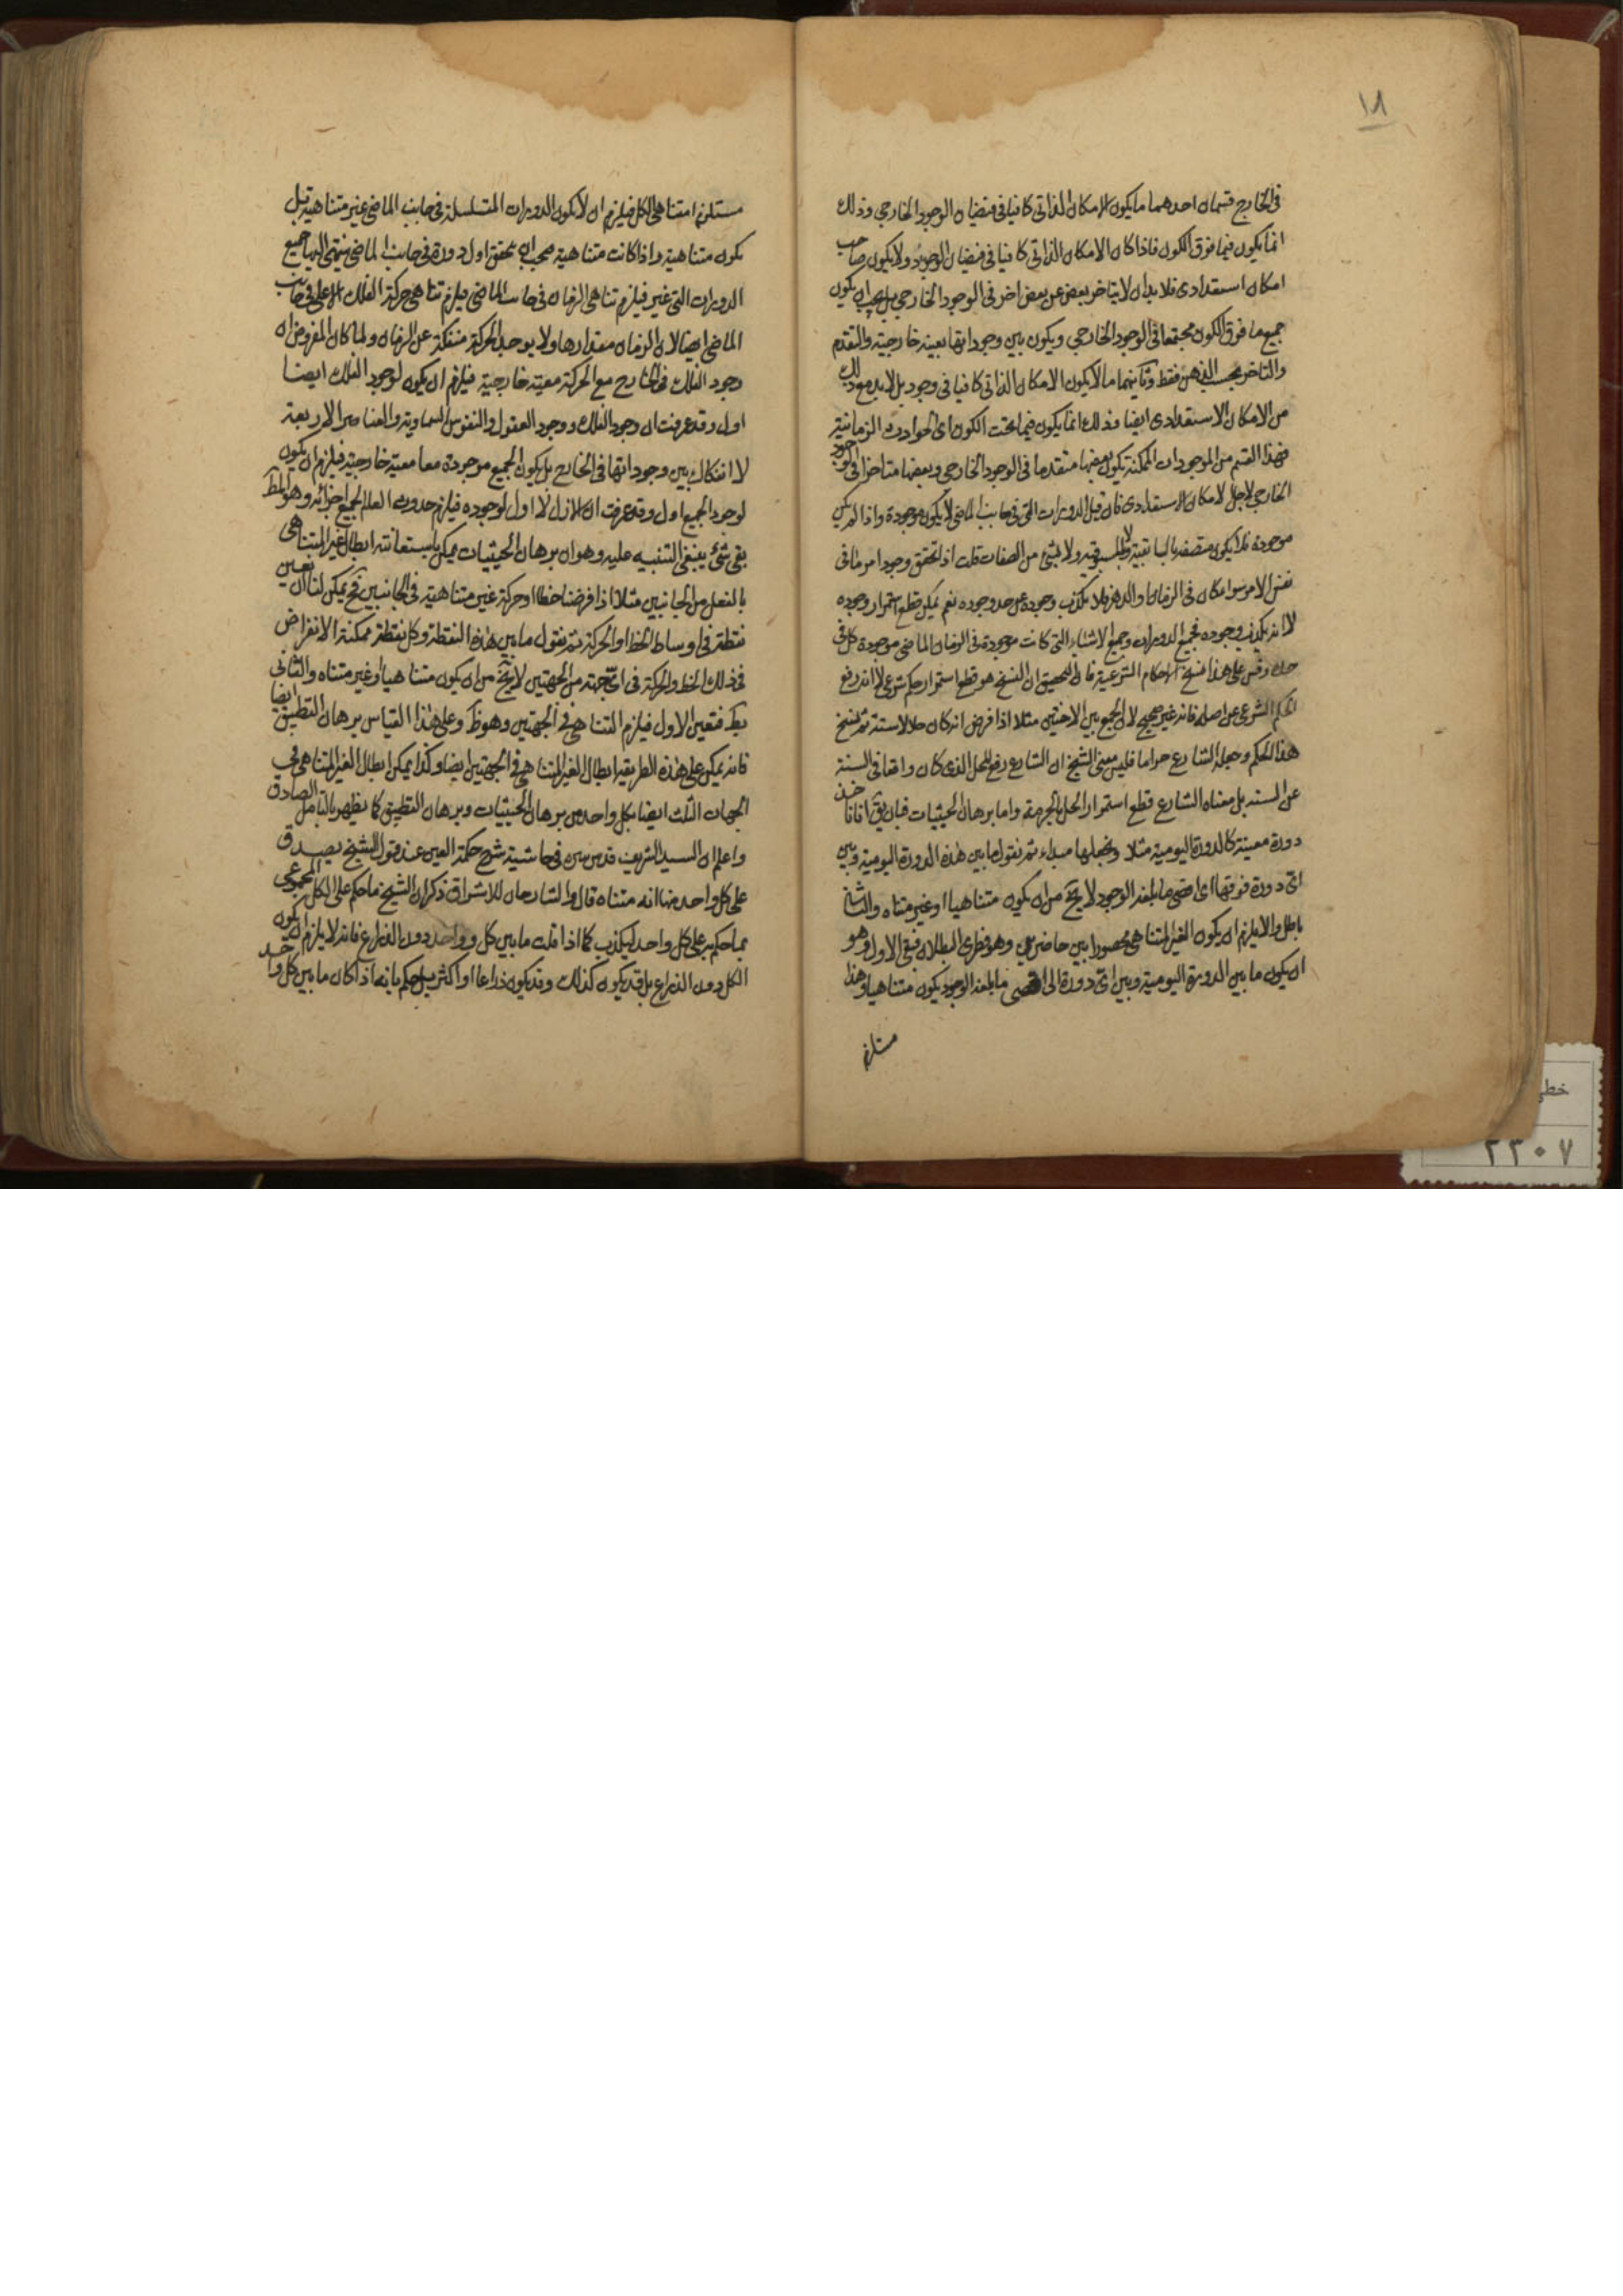 ١٨
فى الخارج قسمان احدهما ما يكون الامكان الذاتى كافيا فى فيضان الوجود الخارجى وذلك
انما يكون فيما فوق الكون فاذا كان الامكان الذاتى كافيا فى فيضان الوجود ولا يكون صاحب
امكان استعدادى فلا بد ان لا يتاخر بعض عن بعض اخر فى الوجود الخارجى بل يجب ان يكون
جميع ما فوق الكون مجتمعا فى الوجود الخارجى ويكون بين وجوداتها معية خارجية والتقدم
والتاخر بحسب الذهن فقط وثانيهما ما لا يكون الامكان الذاتى كافيا فى وجود بل لا بد مع ذلك
من الامكان الاستعدادى ايضا وذلك انما يكون فيما تحت الكون اى الحوادث الزمانية
فهذا القسم من الموجودات الممكنة يكون بعضها متقدما فى الوجود الخارجى وبعضها متاخرا فى الوجود
الخارجى لاجل الامكان الاستعدادى فان قيل الدورات التى فى جانب الماضى لا يكون موجودة واذا لم يكن
موجودة فلا يكون متصفة بالسابقية ولا بالمسبوقية ولا بشئ من الصفات قلت اذا تحقق وجود امر ما فى
نفس الامر سواء كان فى الزمان او الدهر فلا يكذب وجوده عن حد وجوده نعم يمكن قطع استمرار وجوده
لا انه يكذب وجوده فجميع الدورات وجميع الاشياء التى كانت موجودة فى الزمان الماضى موجودة كل فى
حده وقس على هذا نسخ الاحكام الشرعية فان التحقيق ان النسخ هو قطع استمرار حكم شرعى لا انه رفع
الحكم الشرعى عن اصله فانه غير صحيح لان الجمع بين الاختين مثلا اذا فرض انه كان حلالا سنة ثم نسخ
هذا الحكم وجعله الشارع حراما فليس معنى النسخ ان الشارع رفع الحل الذى كان واقعا فى السنة
عن السنة بل معناه الشارع قطع استمرار الحل بالحرمة واما برهان الحيثيات فبان يق انا ناخذ
دورة معينة كالدورة اليومية مثلا ونجعلها مبداء ثم نقول ما بين هذه الدورة اليومية وبين
اى دورة فوقها اى اقصى ما بلغه الوجود لا يخ من ان يكون متناهيا او غير متناه والثانى
باطل والا يلزم ان يكون الغير المتناهى محصورا بين حاضرين وهو فطرى البطلان فبقى الاول وهو
ان يكون ما بين الدورة اليومية وبين اى دورة الى اقصى ما بلغه الوجود يكون متناهيا وهذا
مستلزم
مستلزم لتناهى الكل فيلزم ان لا يكون الدورات المتسلسلة فى جانب الماضى غير متناهية بل
يكون متناهية واذا كانت متناهية يجب ان يتحقق اول دورة فى جانب الماضى ينتهى اليها جميع
الدورات التى غير فيلزم تناهى الزمان فى جانب الماضى فيلزم تناهى حركة الفلك الاعلى فى جانب
الماضى ايضا لان الزمان مقدارها ولا يوجد الحركة منفكة عن الزمان ولما كان المفروض ان
وجود الفلك فى الخارج مع الحركة معية خارجية فيلزم ان يكون لوجود الفلك ايضا
اول وقد عرفت ان وجود الفلك ووجود العقول والنفوس السماوية والعناصر الاربعة
لا انفكاك بين وجوداتها فى الخارج بل يكون الجميع موجودة معا معية خارجية فيلزم ان يكون
لوجود الجميع اول وقد عرفت ان الازل لا اول لوجوده فيلزم حدوث العالم لجميع اجزائه وهو المط
بقى شئ ينبغى التنبيه عليه وهو ان برهان الحيثيات يمكن باستعانته ابطال غير المتناهى
بالفعل من الجانبين مثلا اذا فرضنا خطا او حركة غير متناهية فى الجانبين فح يمكن لنا ان نعين
نقطة فى اوساط الخط او الحركة ثم نقول ما بين هذه النقطة وكل نقطة ممكنة الانفراض
فى ذلك الخط والحركة فى اى جهة من الجهتين لا يخ من ان يكون متناهيا او غير متناه والثانى
بط فتعين الاول فيلزم التناهى فى الجهتين وهو ظ وعلى هذا القياس برهان التطبيق ايضا
فانه يمكن على هذه الطريقة ابطال الغير المتناهى فى الجهتين ايضا وكذا يمكن ابطال الغير المتناهى فى
الجهات الثلث ايضا بكل واحد من برهان الحيثيات وبرهان التطبيق كما يظهر بالتامل الصادق
واعلم ان السيد الشريف قدس سره فى حاشية شرح حكمة العين عند قول الشيخ يصدق
على كل واحد منها انه متناه قال والشارحان للاشراق ذكرا ان الشيخ ما حكم على الكل المجموعى
بما حكم به على كل واحد ليكذب كما اذا قلت ما بين كل وواحد دون الذراع فانه لا يلزم ان يكون
الكل دون الذراع بل قد يكون كذلك وقد يكون ذراعا او اكثر بل حكم بانه اذا كان ما بين كل واحد
خطى
٢٣٠٧